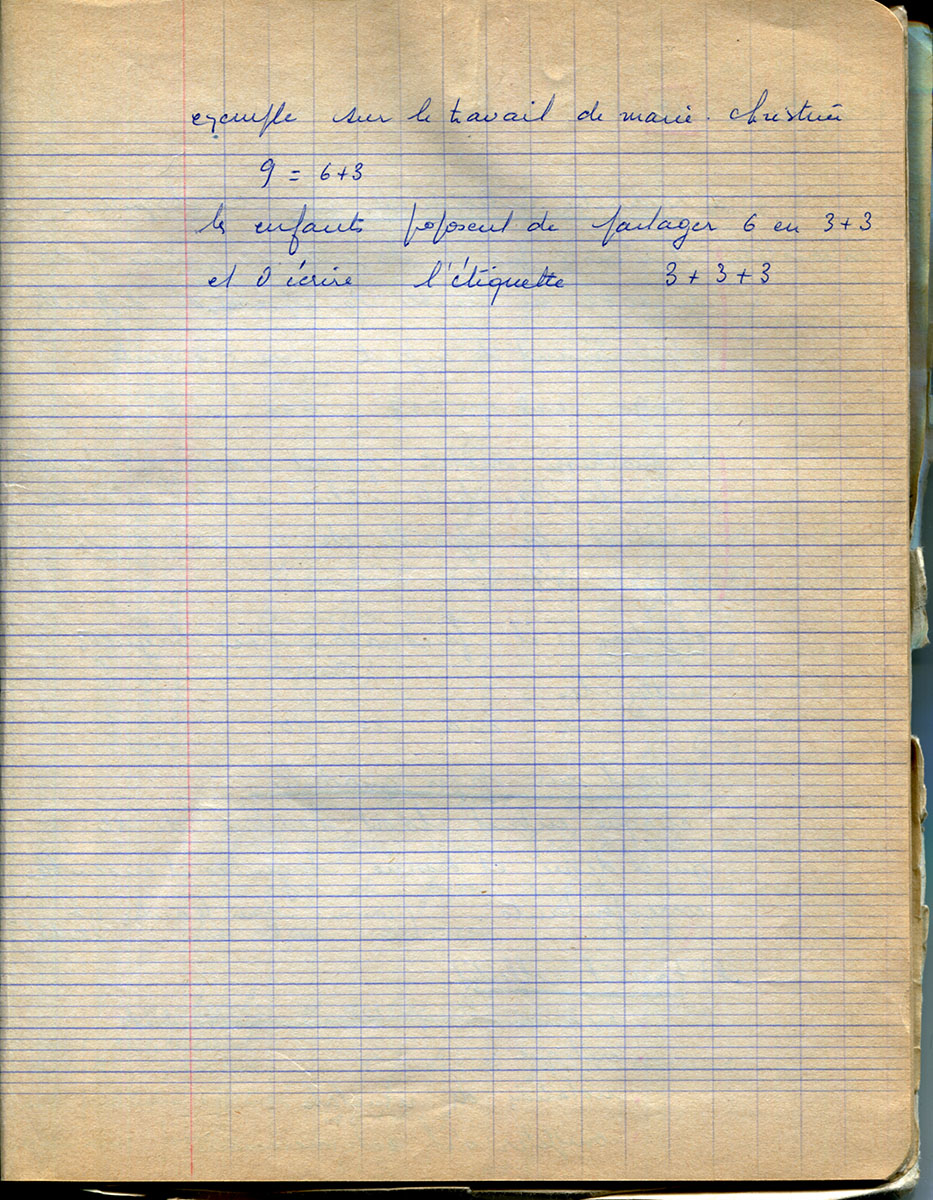 exemple sur le travail de marie. christine
9 = 6+3
les enfants poposent de partager 6 en 3+3
et d'écrire l'étiquette 3+3+3